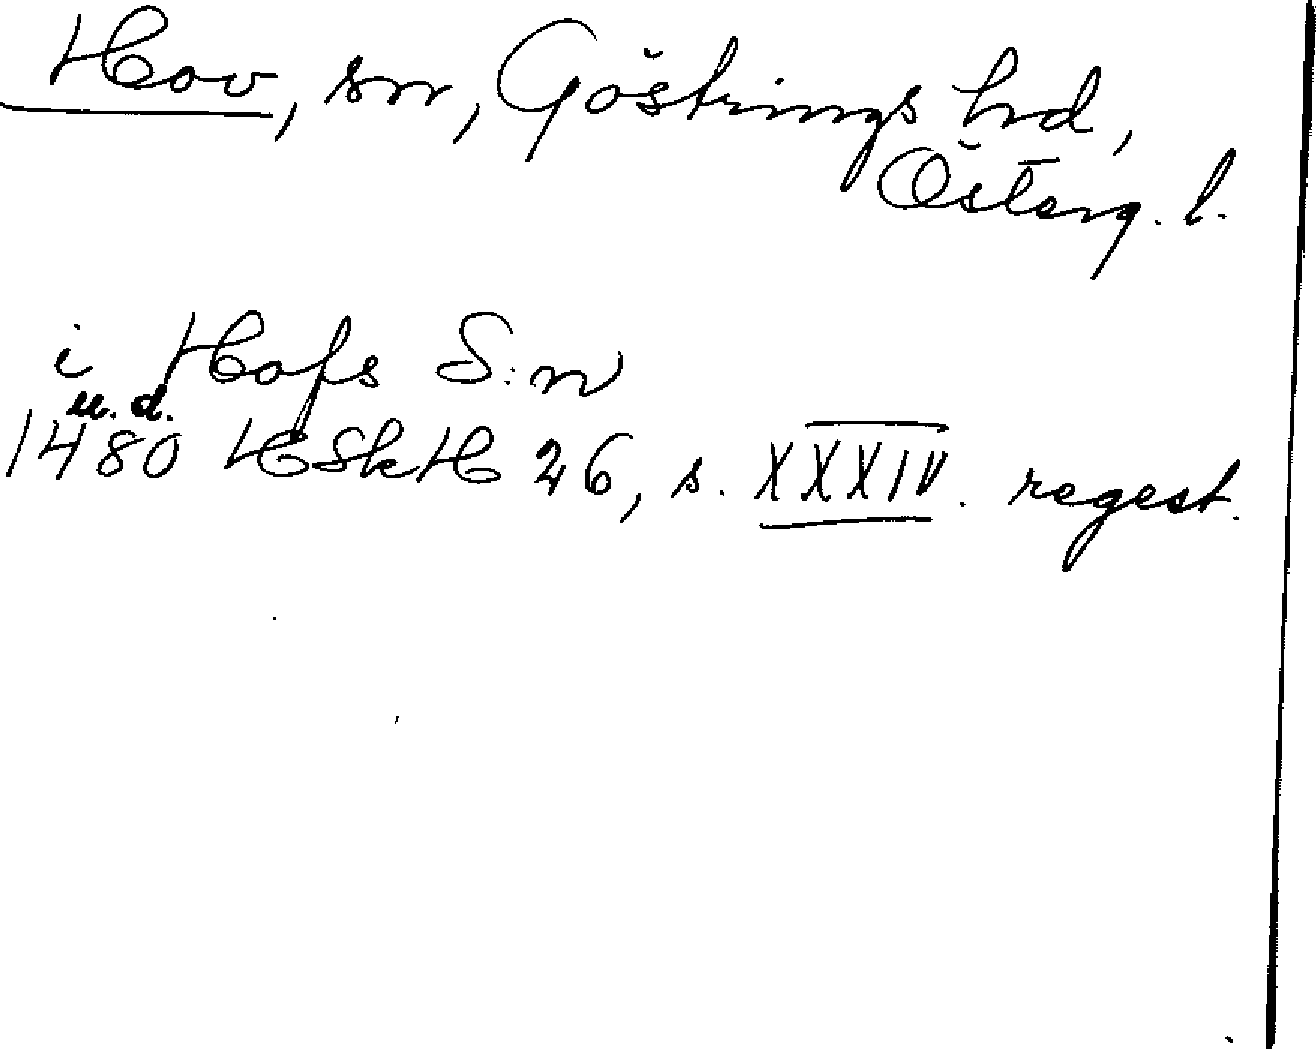 Hov, sn, Göstrings hd,
Österg. l.
i Hofs S:n
u. d.
1480 HSkH 26, s. XXXIV. regest.